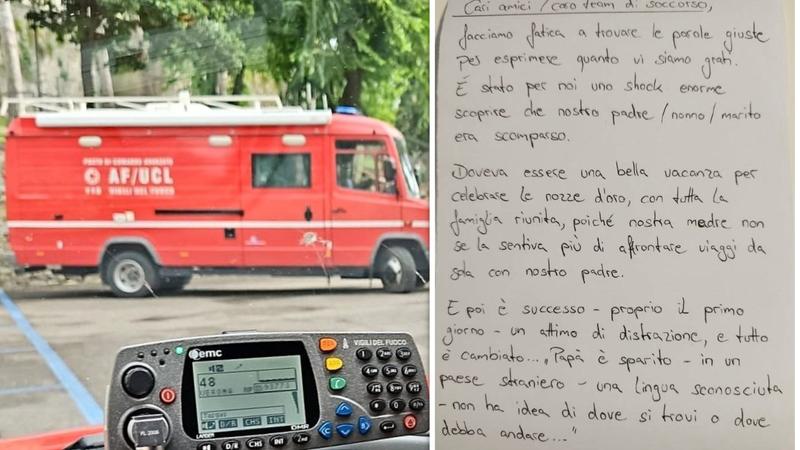 POSTO DI COMANDO AVANZATO
AF/UCL
115 VIGILI DEL FUOCO
emc
VIGILI DEL FUOCO
48
VERONA
D/R CHS INT
LANDER
DMR
D/R CHS INT
Casi amici / caro team di soccorso,
facciamo fatica a trovare le parole giuste
per esprimere quanto vi siamo grati.
È stato per noi uno shock enorme
scoprire che nostro padre / nonno / marito
era scomparso.
Doveva essere una bella vacanza per
celebrare le nozze d'oro, con tutta la
famiglia riunita, poiché nostra madre non
se la sentiva più di affrontare viaggi da
sola con nostro padre.
E poi è successo - proprio il primo
giorno - un attimo di distrazione, e tutto
è cambiato... „Papà è sparito - in un
paese straniero - una lingua sconosciuta
- non ha idea di dove si trovi o dove
debba andare..."